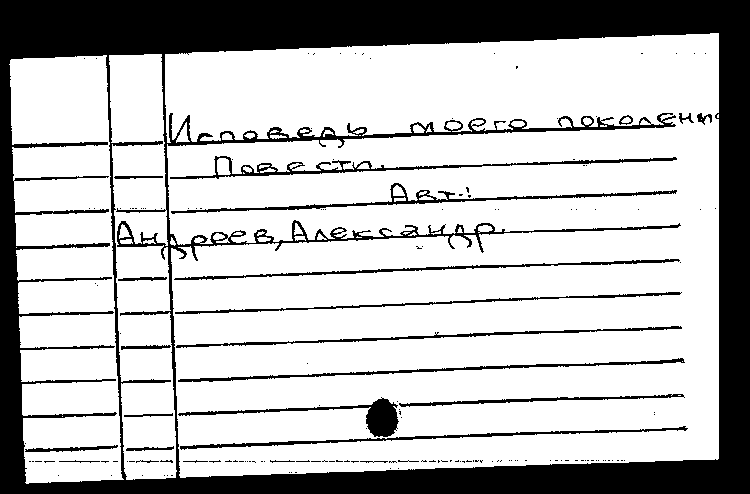 Исповедь моего поколения
Повести.
Авт.:
Андреев, Александр.